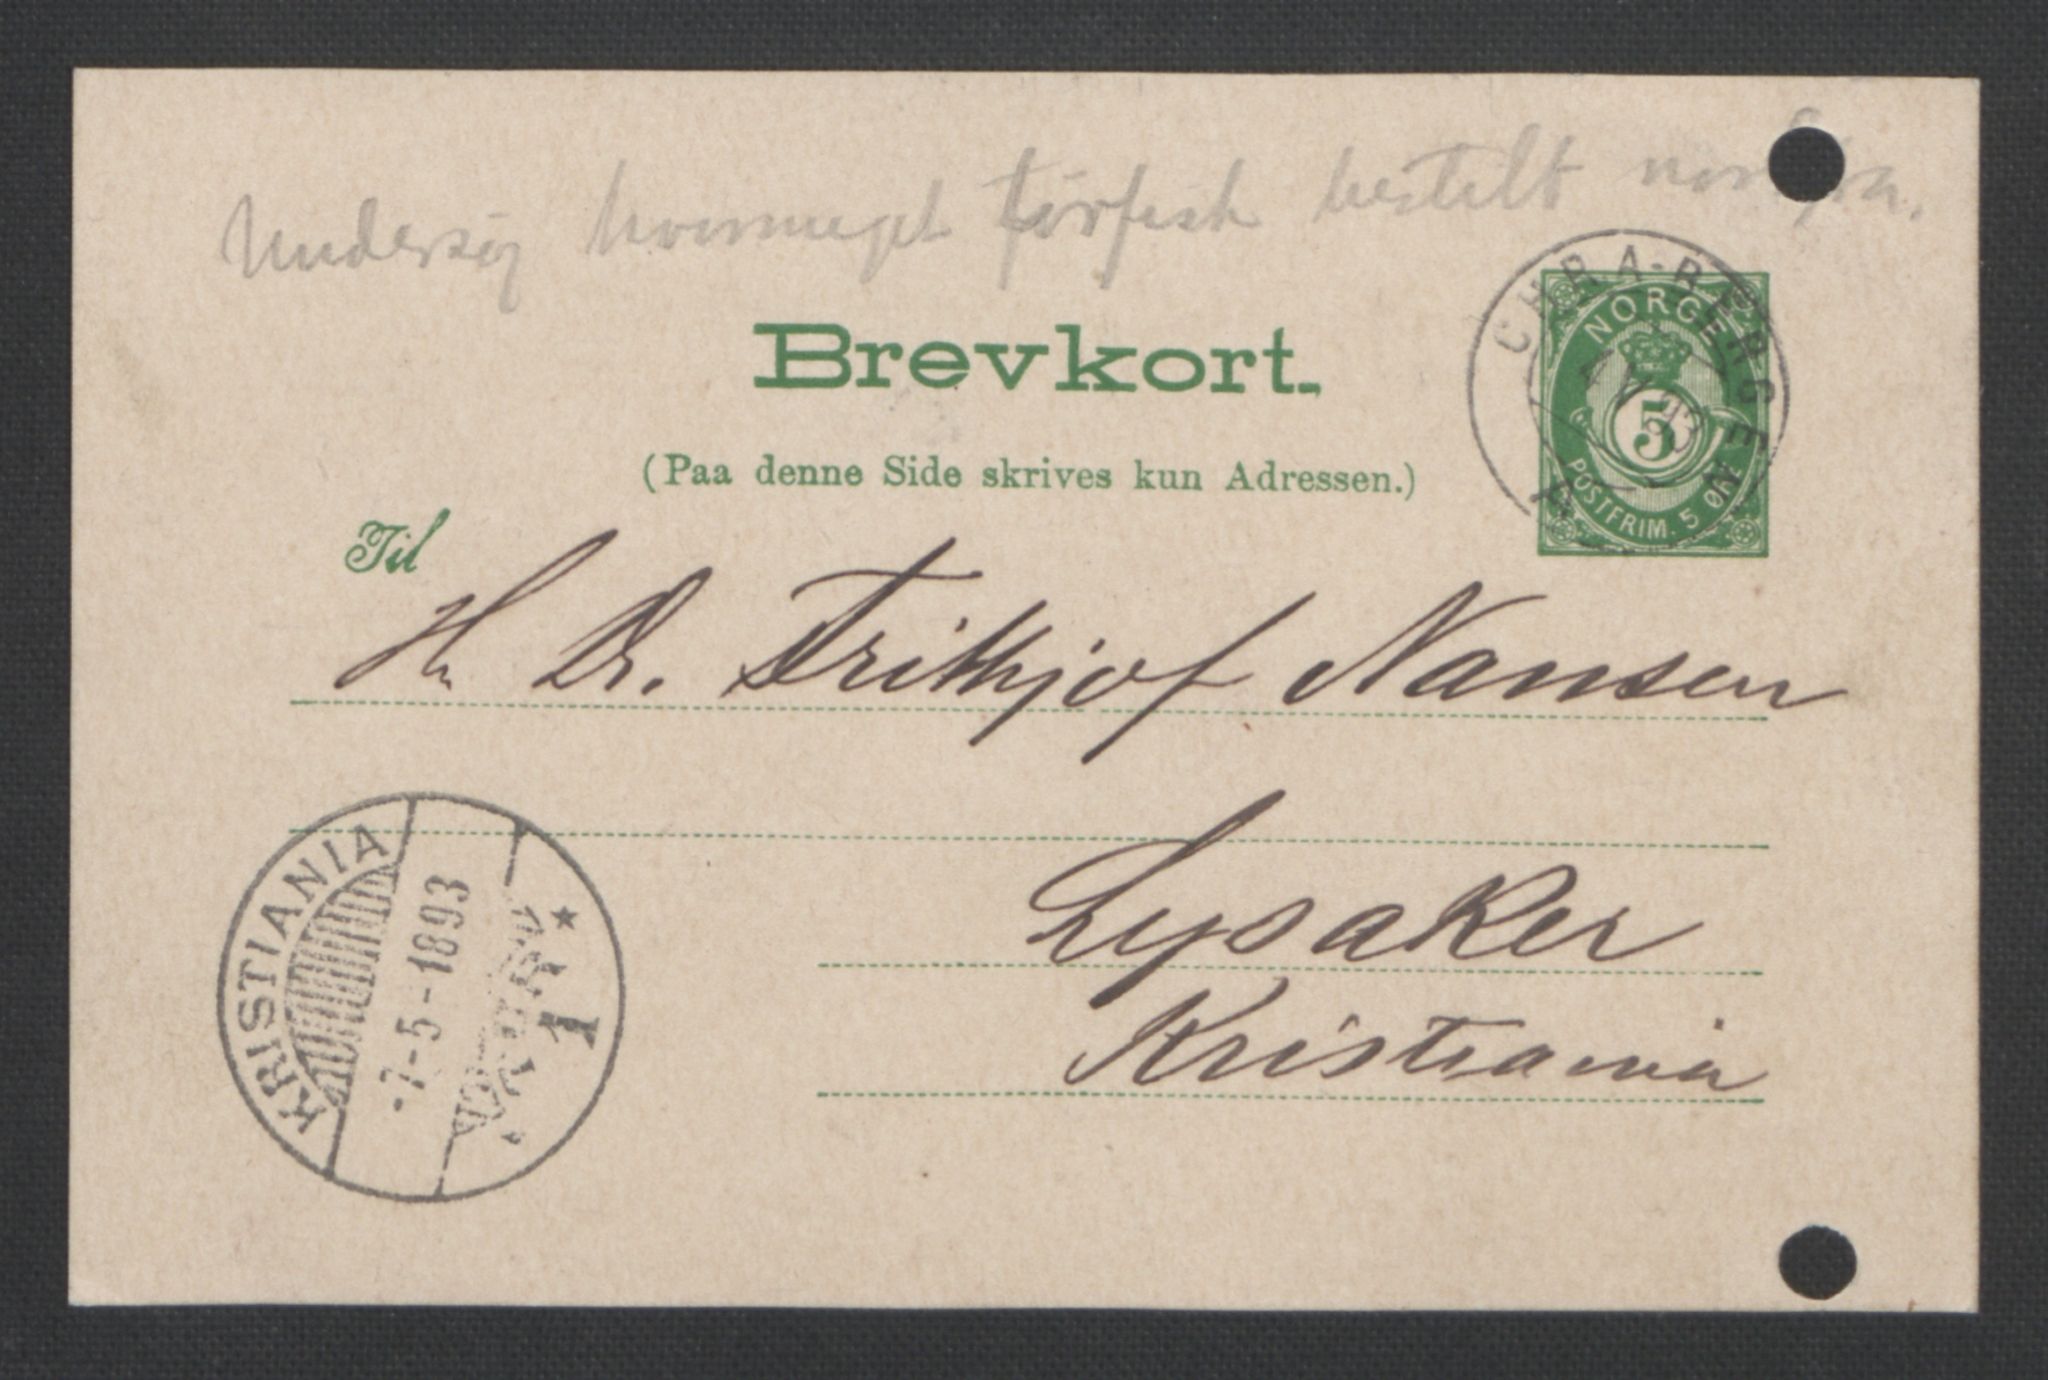 Undersøg hvormeget tørfisk bestilt
Brevkort.
(Paa denne Side skrives kun Adressen.)
CHR.A-BERGEN
NORGE
5
POSTFRIM. 5 ØRE
Til
Hr Dr. Frithjof Nansen
Lysaker
Kristiania
KRISTIANIA
-7-5-1893
* 1